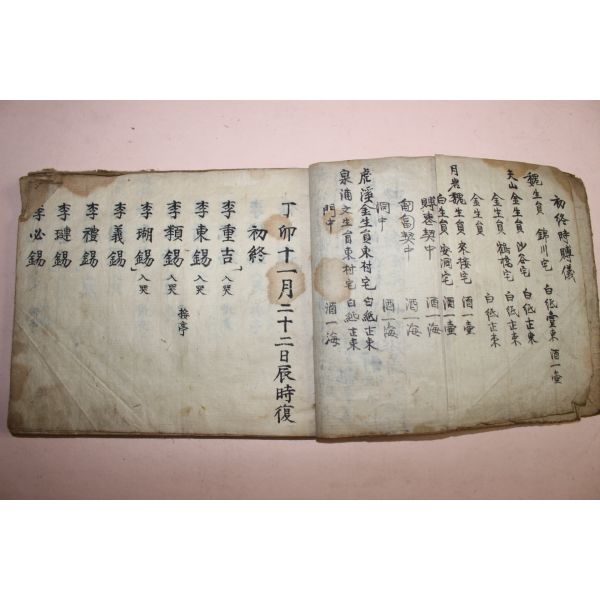 初終時賻儀
魏生員 錦川宅 白紙壹束 酒一壺
夫山金生員 山谷宅 白紙壹束
金生員 鶴橋宅 白紙壹束
金生員 白紙壹束
月岩魏生員 來接宅 酒一壺
白生員 安洞宅 酒一壺
賻喪契中 酒一海
契中 酒一海
洞中 酒一海
虎溪金生員東村宅 白紙壹束
泉浦文生員東村宅 白紙壹束
門中 酒一海
丁卯十一月二十二日辰時復
初終
李重吉 入哭
李東錫 入哭
李類錫 入哭
李瑚錫 入哭
李義錫
李禮錫
李璉錫
李必錫